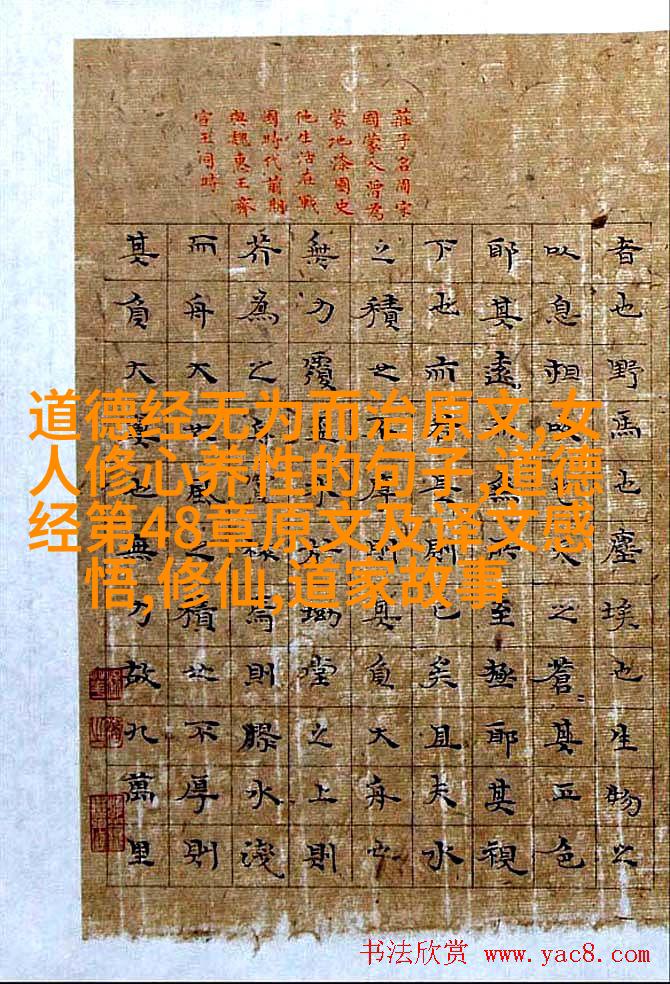 莊子名周宋
國蒙人曾為
蒙地漆園史
他生活在戰
國時代前期
與魏惠王齊
宣王同時
者也野馬也塵埃也生物之
以息相吹也天之蒼〻其正色
耶其遠而無所至極耶其視
下也而若是則已矣且夫水
之積也不厚則其負大舟也
無力覆杯水於坳堂之上則
芥為之舟置杯焉則膠水淺
而舟大也風之積也不厚則
其負大翼也無力故九萬里
道德经无为而治原文,女
人修心养性的句子,道德
经第48章原文及译文感
悟,修仙,道家故事
书法欣赏 www.yac8.com